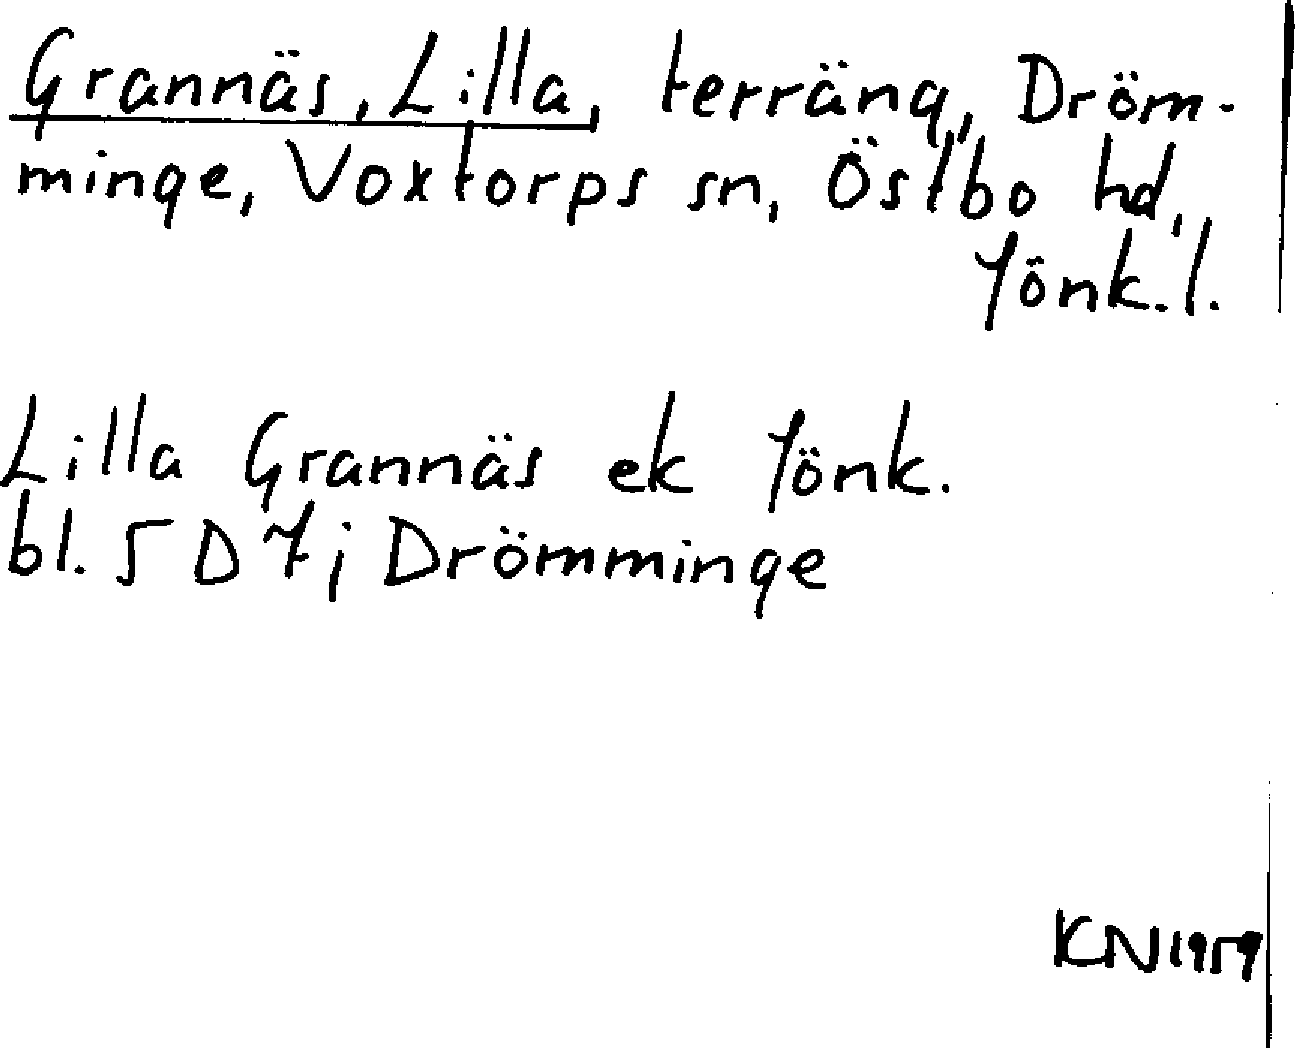 Grannäs, Lilla, terräng, Dröm-
minge, Voxtorps sn, Östbo hd,
Jönk. l.
Lilla Grannäs ek Jönk.
bl. 5 D 7 j Drömminge
KN 1959